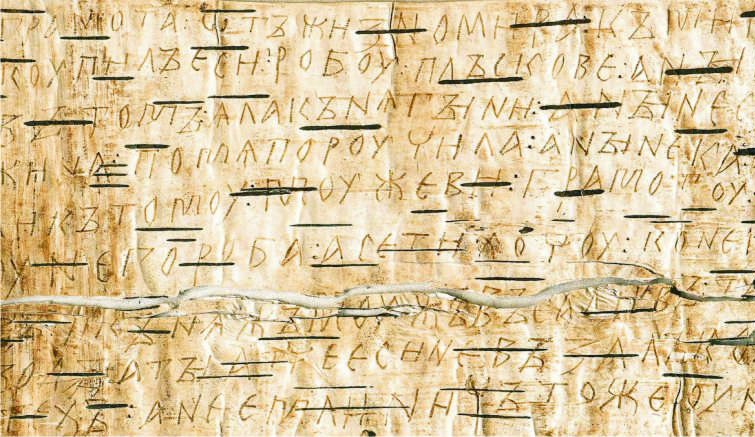 грамота : ѡтъ жизномира : къ мик
коупилъ еси : робоу : плъскове : а ныне
въ томъ : ѧла кънѧгыни : а ныне с
жина : по мѧ пороучила : а ныне ка
ли къ томоу : моужеви : грамотоу
оу него роба : а се ти хочоу : коне
кънѧжъ моужъ въса
а ты атче еси не възалъ
техъ : а не емли : ничъто же оу н